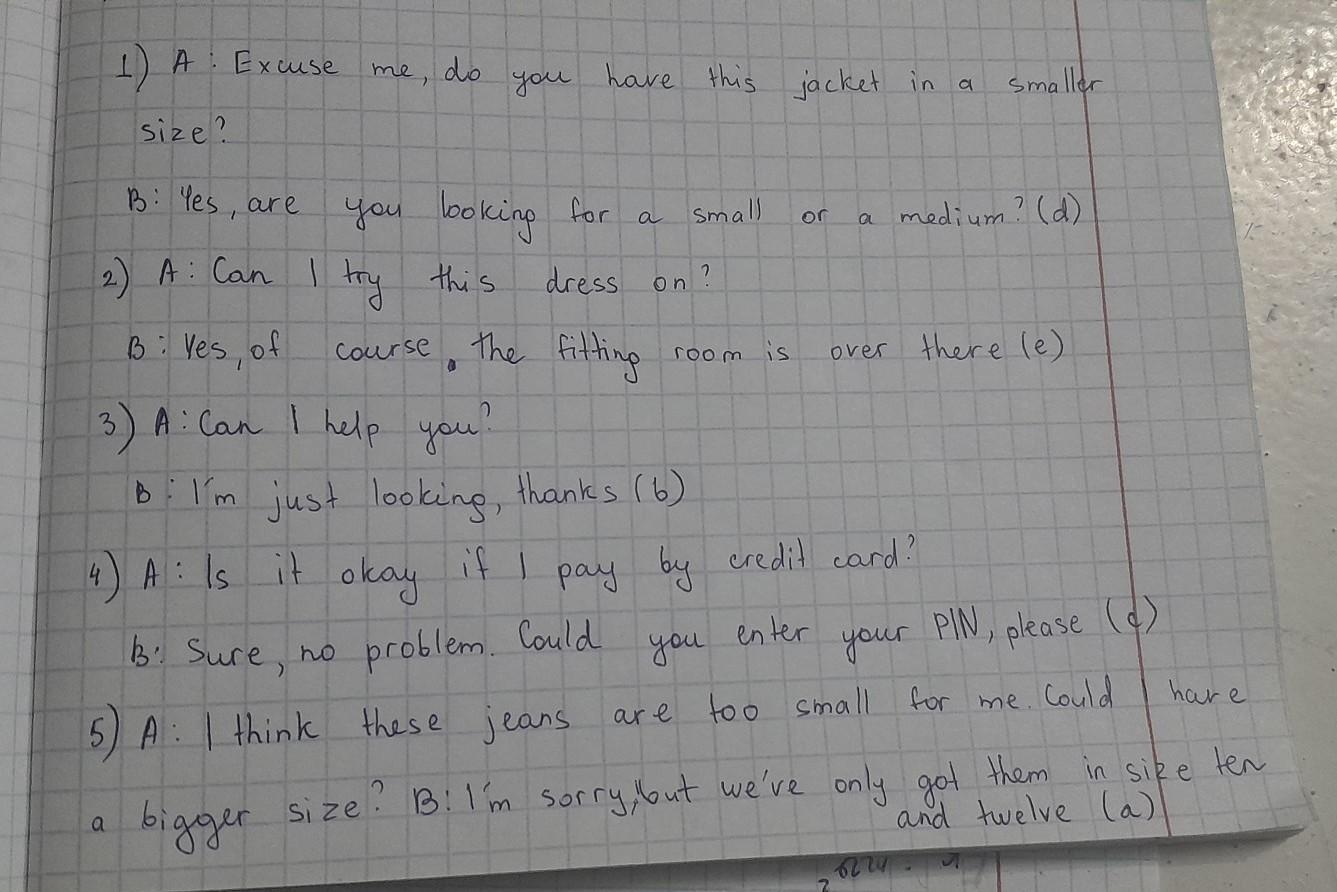 1) A: Excuse me, do you have this jacket in a smaller
size?
B: Yes, are you looking for a small or a medium? (d)
2) A: Can I try this dress on?
B: Yes, of course. the fitting room is over there (e)
3) A: Can I help you?
B: I'm just looking, thanks (b)
4) A: Is it okay if I pay by credit card?
B: Sure, no problem. Could you enter your PIN, please (c)
5) A: I think these jeans are too small for me. Could I have
a bigger size? B: I'm sorry, but we've only got them in size ten
and twelve (a)